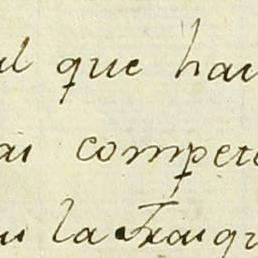 al que hai
ai compete
la Franq